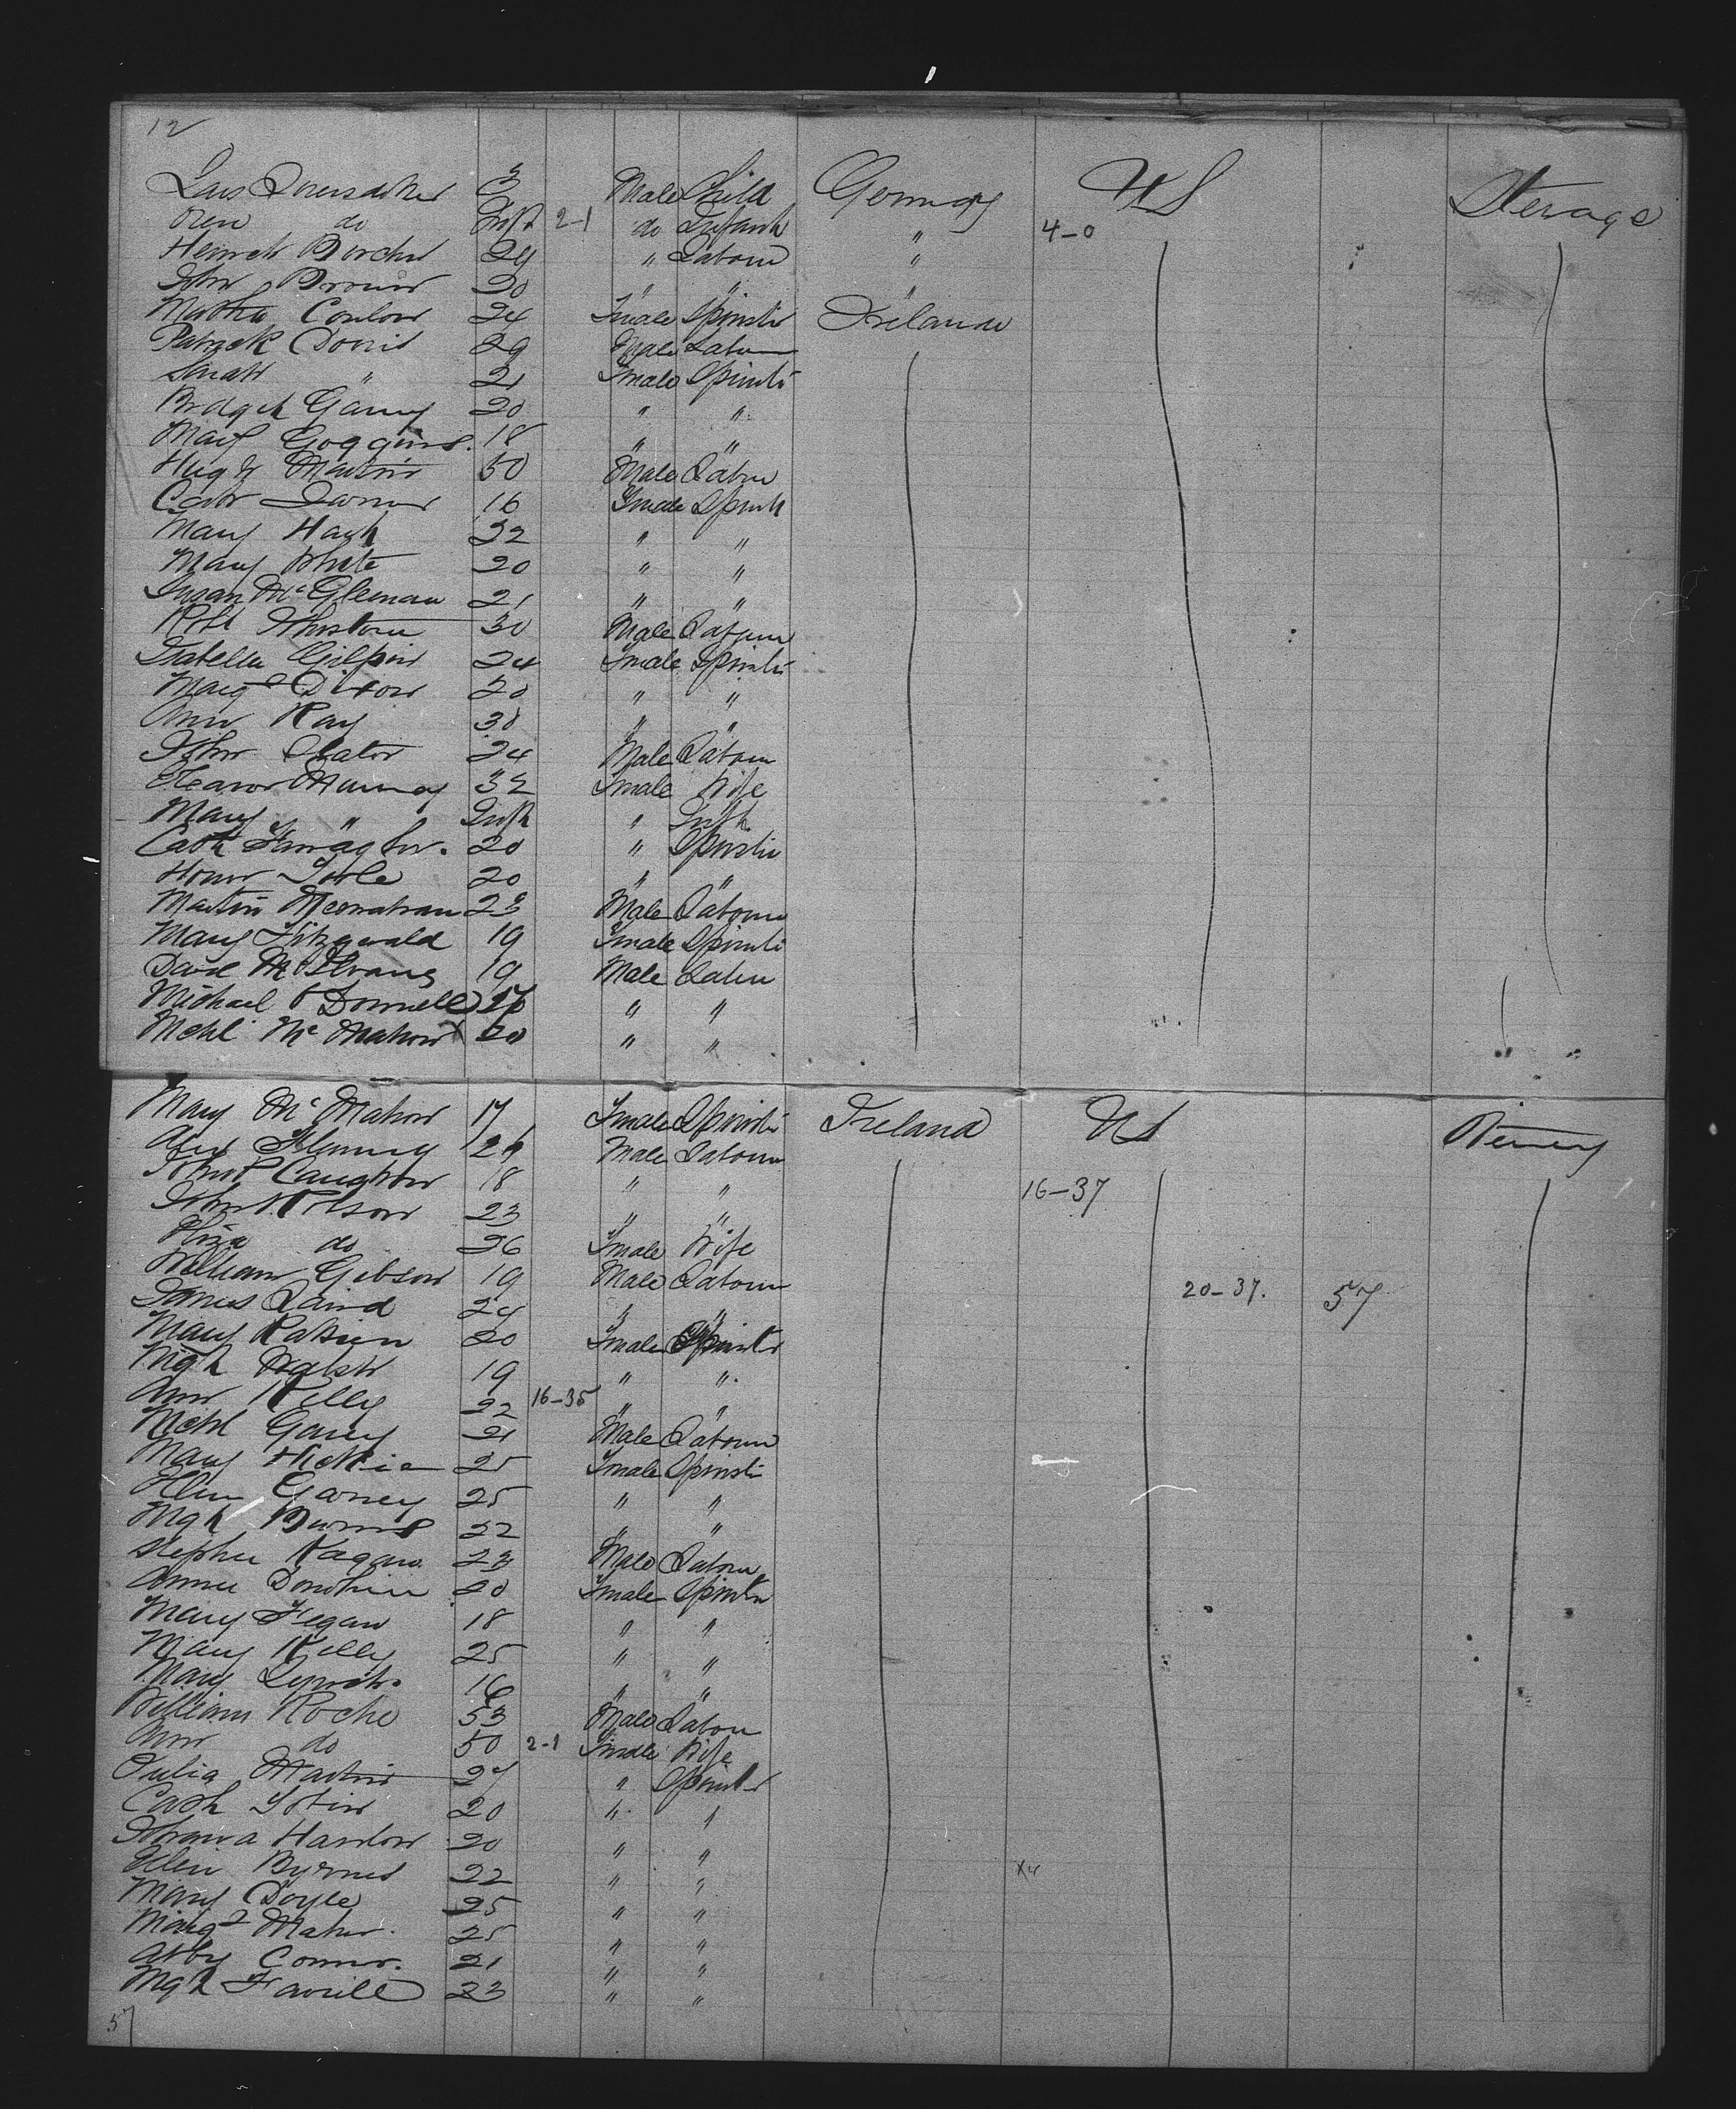 12
Lars 3 Male Child Germany US Steerage
do Inft 2-1 do Infant " 4-0
Heinrich Borcher 29 " Labour "
John Brown 20 " " "
Martha Conlon 24 Fmale Spinster Ireland
Patrick Dorris 29 Male Labour
Sarah " 21 Fmale Spinstr
Bridget Garvey 20 " "
Mary Goggins. 18 " "
Hugh Martin 50 Male Labour
Cath 16 Fmale Spinstr
Mary 22 " "
Mary White 20 " "
Susan McGlennan 21 " "
Robt Johnstone 30 Male Labour
Isabella Gilpin 24 Fmale Spinstr
Margt Dixon 20 " "
Ann Ray 30 " "
John Slator 24 Male Labour
Eleanor Murray 32 Fmale Wife
Mary " Inft " Inft
Cath 20 " Spinstr
Honor Toole 20 " "
Martin Meenahan 23 Male Labour
Mary Fitzgerald 19 Fmale Spinstr
David McIlvany 19 Male Labour
Michael O'Donnell " "
Mchl McMahon 20 " "
Mary McMahon 17 Fmale Spinstr Ireland US
Alex Fleming Male Labour
John Caughron 18 " " 16-37
John Robson 23 " "
Eliza do 26 Fmale Wife
William Gibson 19 Male Labour 20-37. 57
James Laird 24 " "
Mary 20 Fmale Spinstr
Mgt Walsh 19 " "
Ann Kelly 22 16-35 " "
Mchl Garvey 21 Male Labour
Mary Hickie 25 Fmale Spinstr
Ellen Garvey 25 " "
Mgt Burns 22 " "
Stephen Kagan 23 Male Labour
Annie Donohue 20 Fmale Spinstr
Mary Fegan 18 " "
Mary Kelly 25 " "
Mary Lynch. 16 " "
William Roche 53 Male Labour
Ann do 50 2-1 Fmale Wife
Julia Martin 27 " Spinstr
Cath Tobin 20 " "
Johanna Hanlon 20 " "
Ellen Byrnes 22 " "
Mary Doyle 25 " "
Margt Maher. 25 " "
Abby Connor. 21 " "
Mgt 23 " "
57